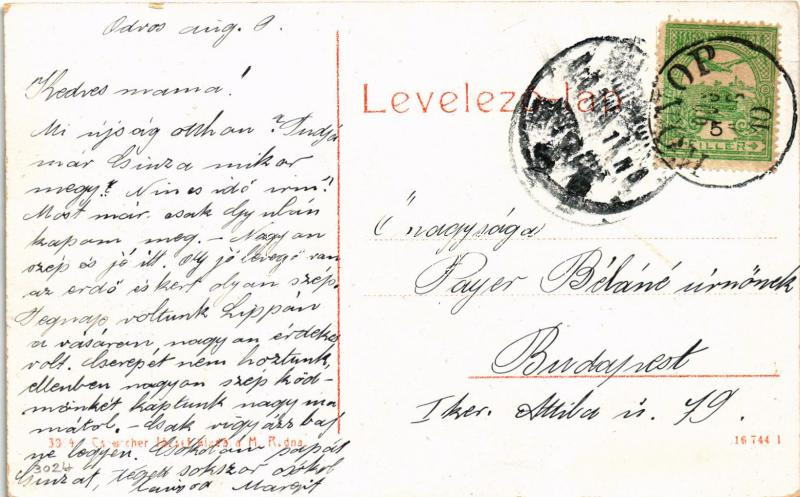 Odvos aug. 9.
Kedves mama!
Mi újság otthon? Tudja
már Csinza mikor
megy? Nincs idő írni?
Most már csak Gyulán
kapom meg. - Nagyon
szép és jó itt. Oly jó levegő van
az erdő és kert olyan szép.
Tegnap voltunk Lippán
a vásáron, nagyon érdekes
volt. Cserepet nem hoztunk,
ellenben nagyon szép köd-
mönkét kaptunk nagyma-
mától. - Csak vigyázz baj
ne legyen. Csókolom papát
Csinzát, téged sokszor csókol
lányod Margit
3024
Levelező-lap
FILLÉR
Őnagysága
Payer Béláné úrnőnek
Budapest
I ker. Attila ú. 79.
M. Radna
16 744 1